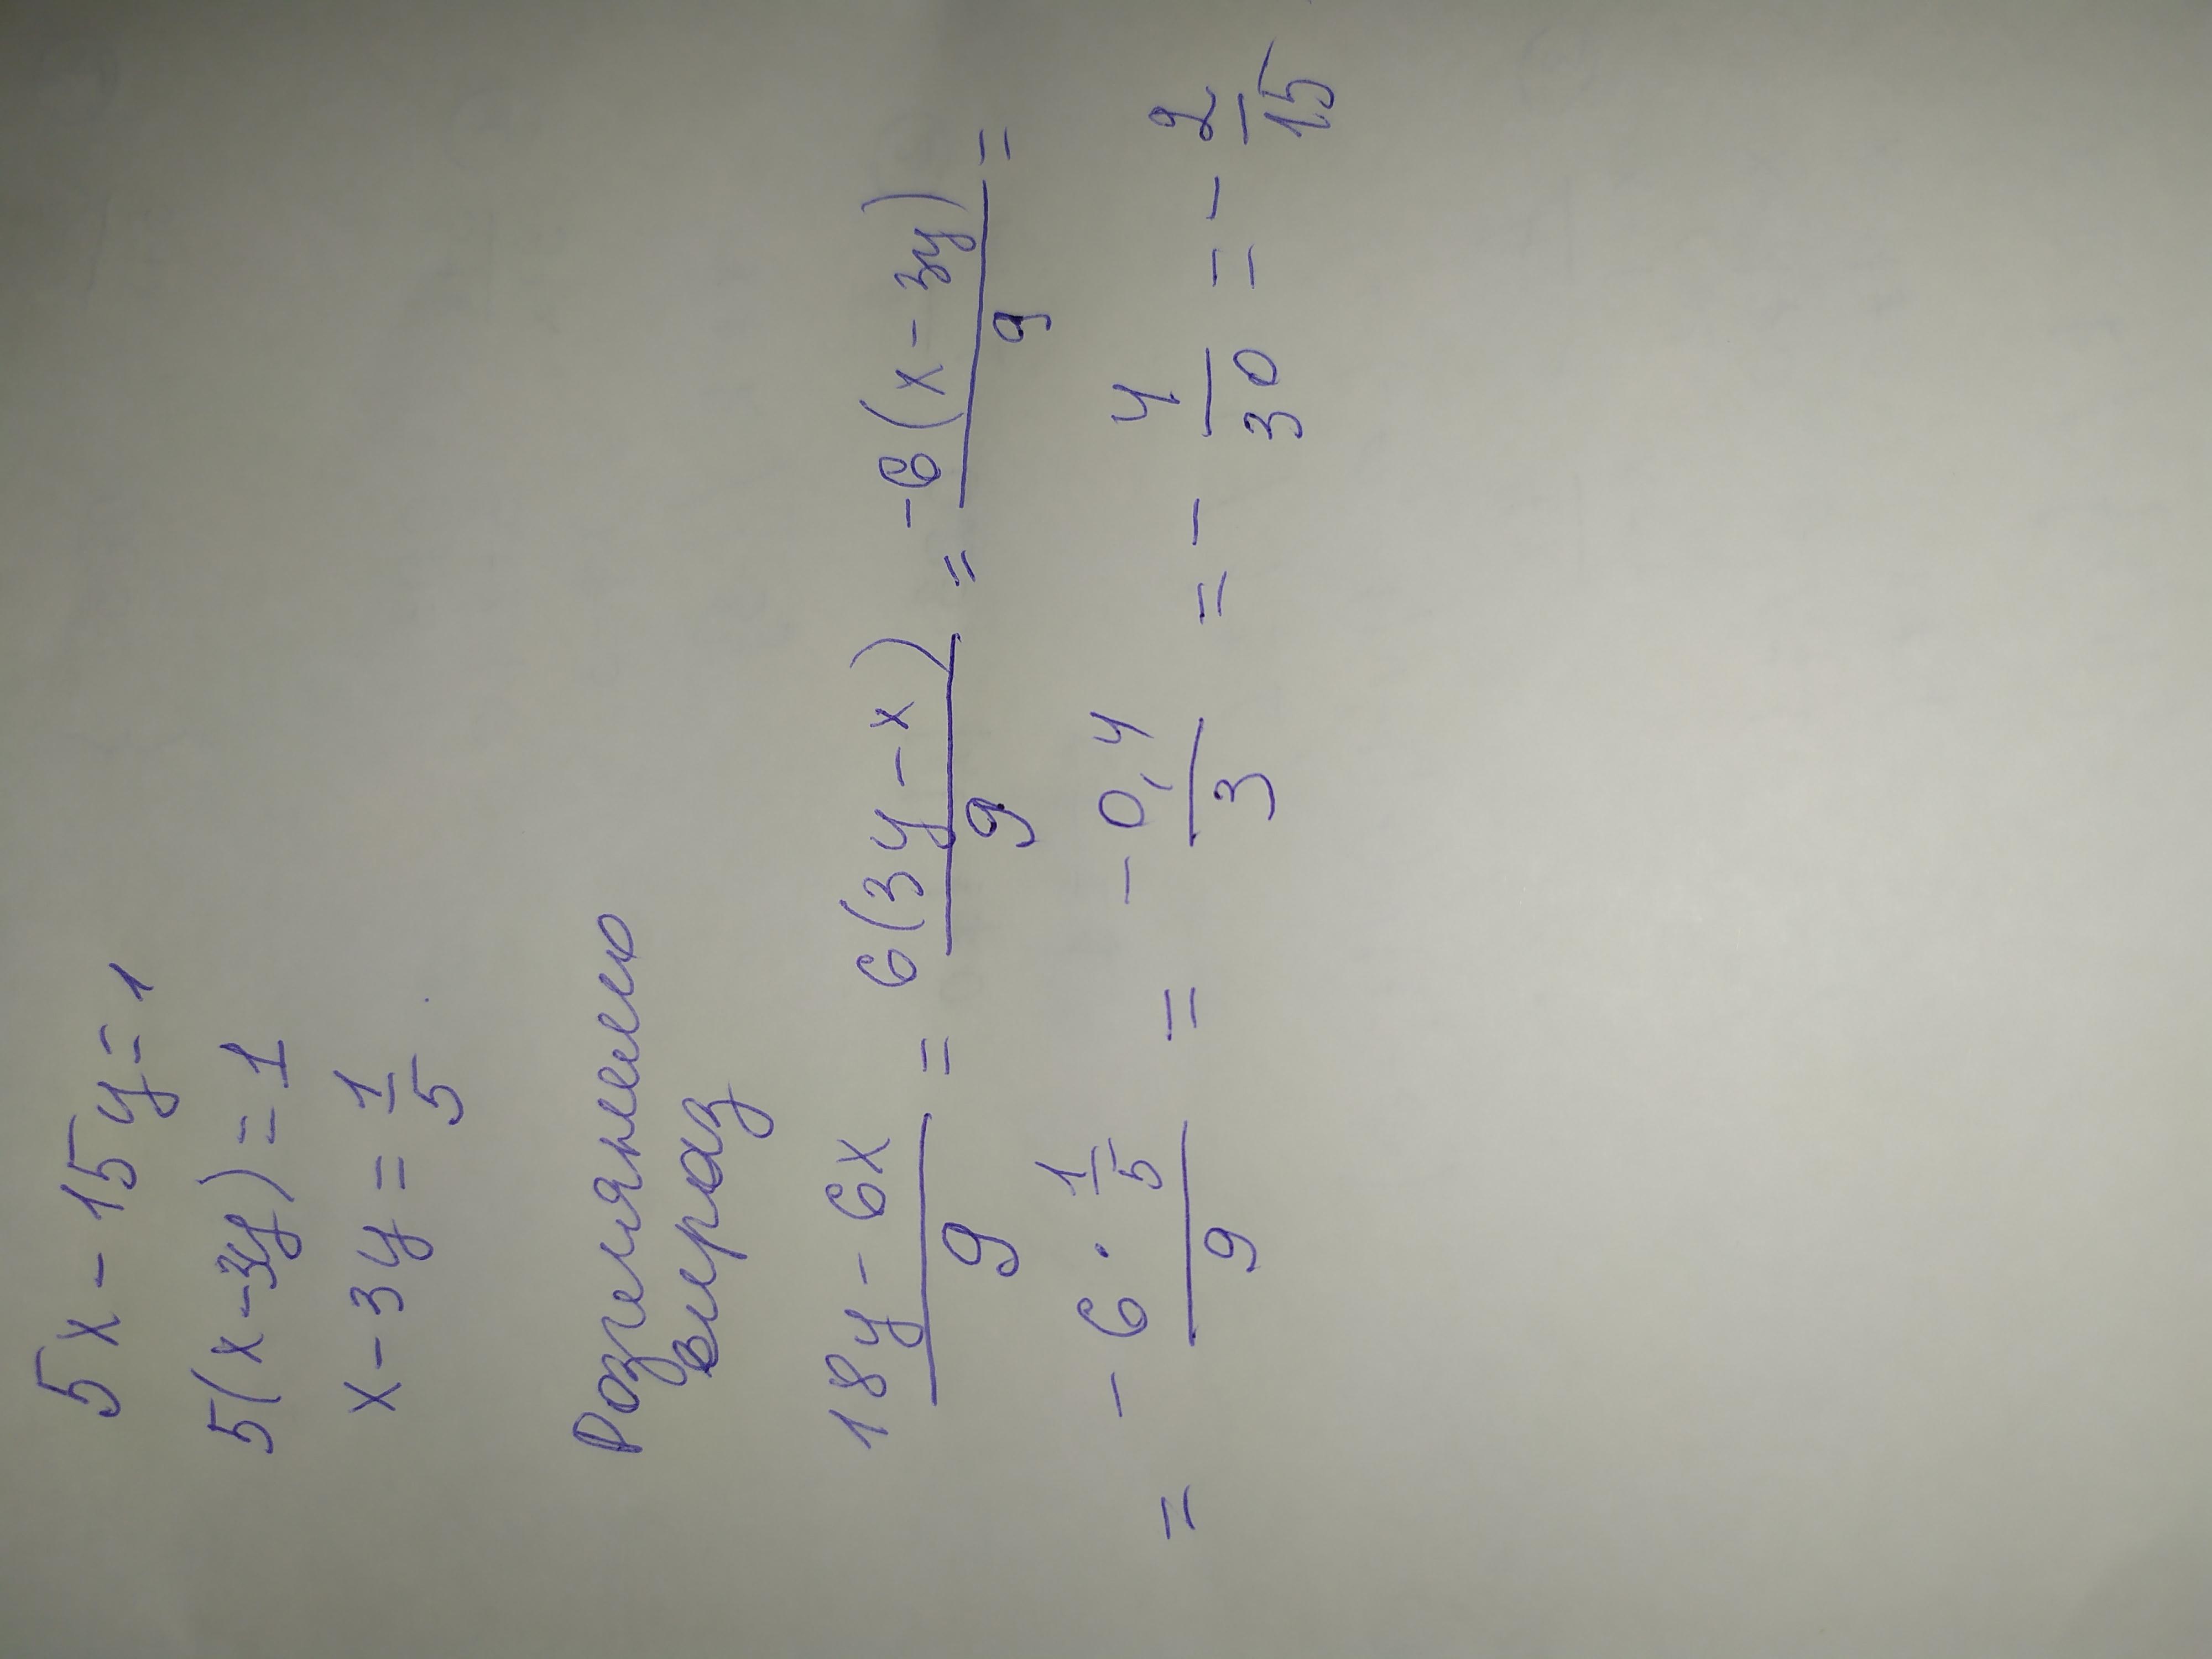 5x - 15y = 1
5(x - 3y) = 1
x - 3y = 1/5
Розглянемо
вираз
(18y - 6x)/9 = 6(3y - x)/9 = -6(x - 3y)/9 =
= (-6 · 1/5)/9 = -0,4/3 = -4/30 = -2/15